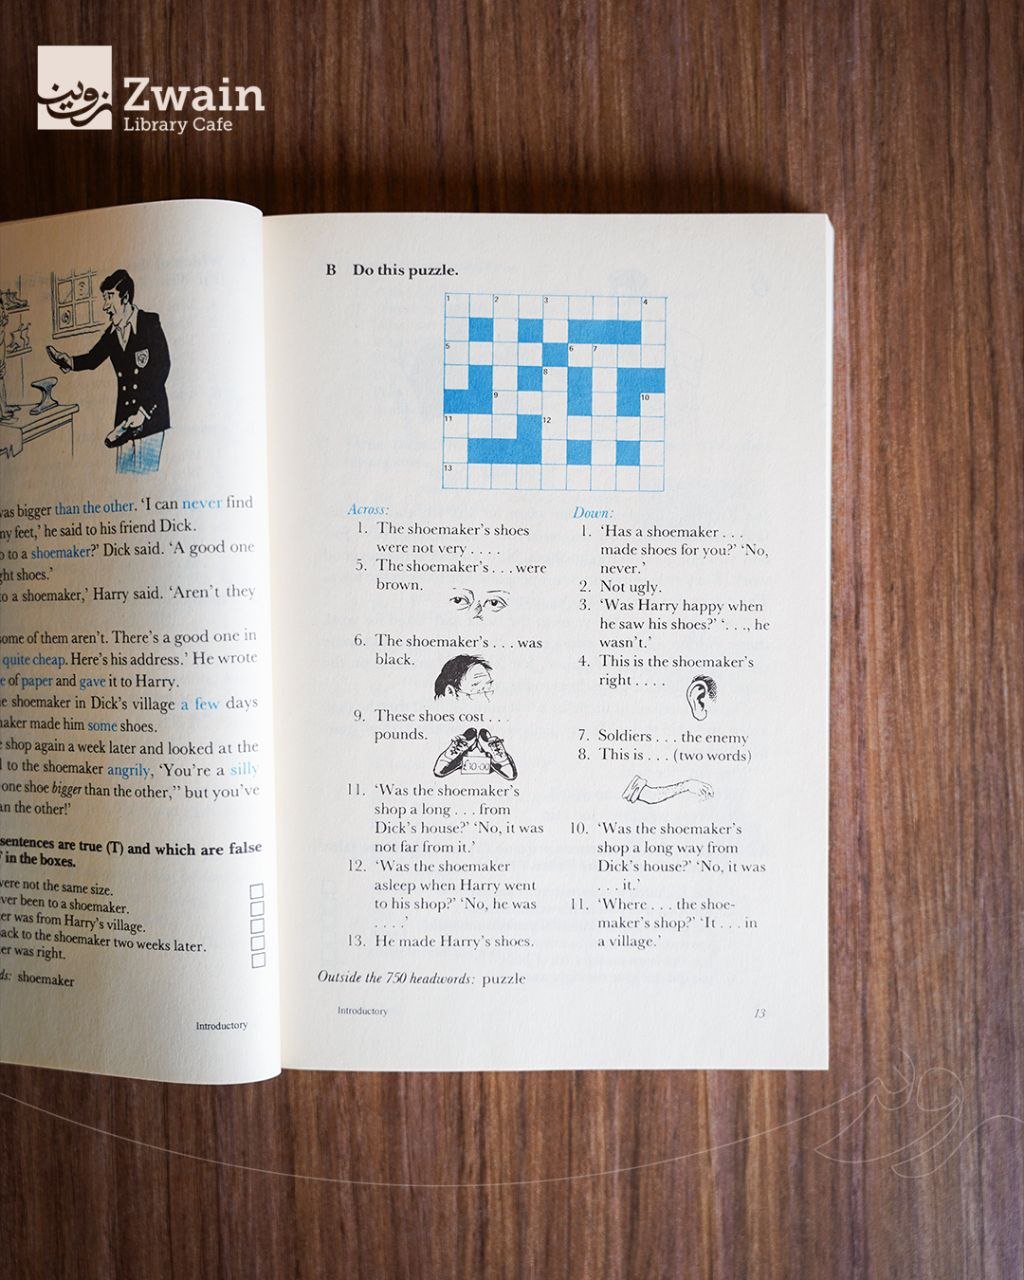 زوين
Zwain
Library Cafe
was bigger than the other. ‘I can never find
my feet,’ he said to his friend Dick.
to a shoemaker?’ Dick said. ‘A good one
ght shoes.’
to a shoemaker,’ Harry said. ‘Aren’t they
some of them aren’t. There’s a good one in
quite cheap. Here’s his address.’ He wrote
e of paper and gave it to Harry.
e shoemaker in Dick’s village a few days
maker made him some shoes.
e shop again a week later and looked at the
l to the shoemaker angrily, ‘You’re a silly
one shoe bigger than the other,” but you’ve
an the other!’
sentences are true (T) and which are false
in the boxes.
were not the same size.
ver been to a shoemaker.
er was from Harry’s village.
ack to the shoemaker two weeks later.
er was right.
ds: shoemaker
Introductory
B Do this puzzle.
1 2 3 4
5 6 7
8
9 10
11 12
13
Across:
1. The shoemaker’s shoes
were not very . . . .
5. The shoemaker’s . . . were
brown.
6. The shoemaker’s . . . was
black.
9. These shoes cost . . .
pounds.
£10·00
11. ‘Was the shoemaker’s
shop a long . . . from
Dick’s house?’ ‘No, it was
not far from it.’
12. ‘Was the shoemaker
asleep when Harry went
to his shop?’ ‘No, he was
. . . .’
13. He made Harry’s shoes.
Down:
1. ‘Has a shoemaker . . .
made shoes for you?’ ‘No,
never.’
2. Not ugly.
3. ‘Was Harry happy when
he saw his shoes?’ ‘. . ., he
wasn’t.’
4. This is the shoemaker’s
right . . . .
7. Soldiers . . . the enemy
8. This is . . . (two words)
10. ‘Was the shoemaker’s
shop a long way from
Dick’s house?’ ‘No, it was
. . . it.’
11. ‘Where . . . the shoe-
maker’s shop?’ ‘It . . . in
a village.’
Outside the 750 headwords: puzzle
Introductory
13